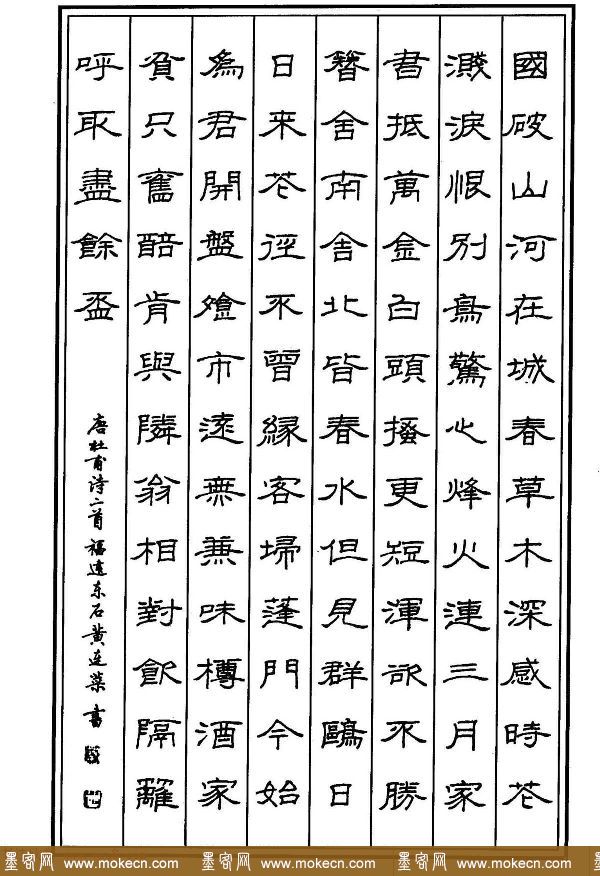 國破山河在城春草木深感時花
濺淚恨別鳥驚心烽火連三月家
書抵萬金白頭搔更短渾欲不勝
簪舍南舍北皆春水但見群鷗日
日來花徑不曾緣客埽蓬門今始
為君開盤飧市遠無兼味樽酒家
貧只舊醅肯與隣翁相對飲隔籬
呼取盡餘盃
唐杜甫诗二首 福建东石黄连 書
墨客网 www.mokecn.com 墨客网 www.mokecn.com 墨客网 www.mokecn.com